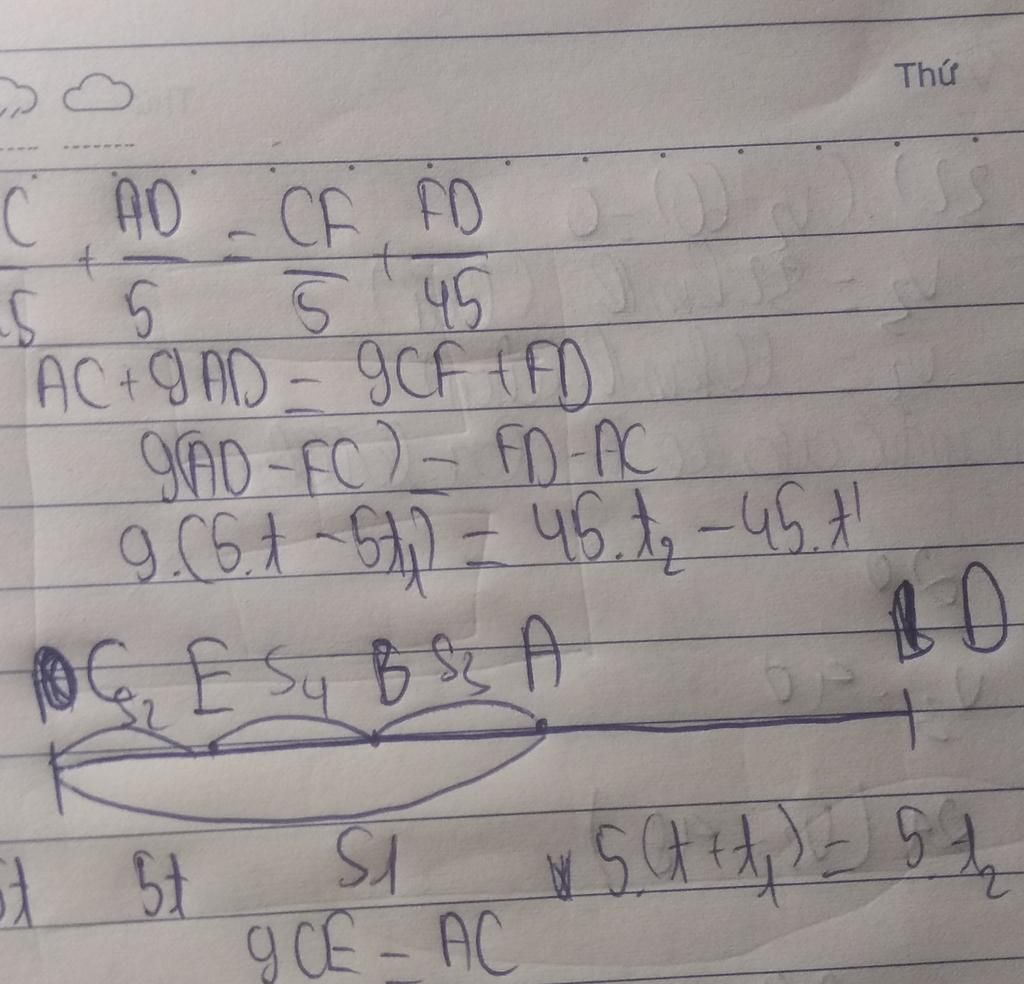 Thứ
C/5 + AD/5 = CF/5 + FD/45
AC + 9AD = 9CF + FD
9(AD - FC) = FD - AC
9.(5.t - 5t₁) = 45.t₂ - 45.t'
C E S₄ B S₃ A D
S₂
5t S1 5(t + t₁) = 5.t₂
9CE = AC